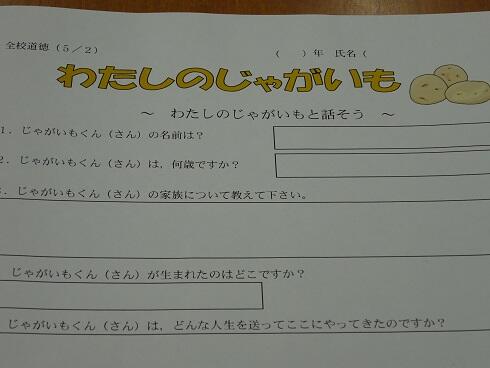 全校道徳（５／２）
（　　）年　氏名（
わたしのじゃがいも
～　わたしのじゃがいもと話そう　～
1．じゃがいもくん（さん）の名前は？
2．じゃがいもくん（さん）は，何歳ですか？
．じゃがいもくん（さん）の家族について教えて下さい。
じゃがいもくん（さん）が生まれたのはどこですか？
じゃがいもくん（さん）は，どんな人生を送ってここにやってきたのですか？